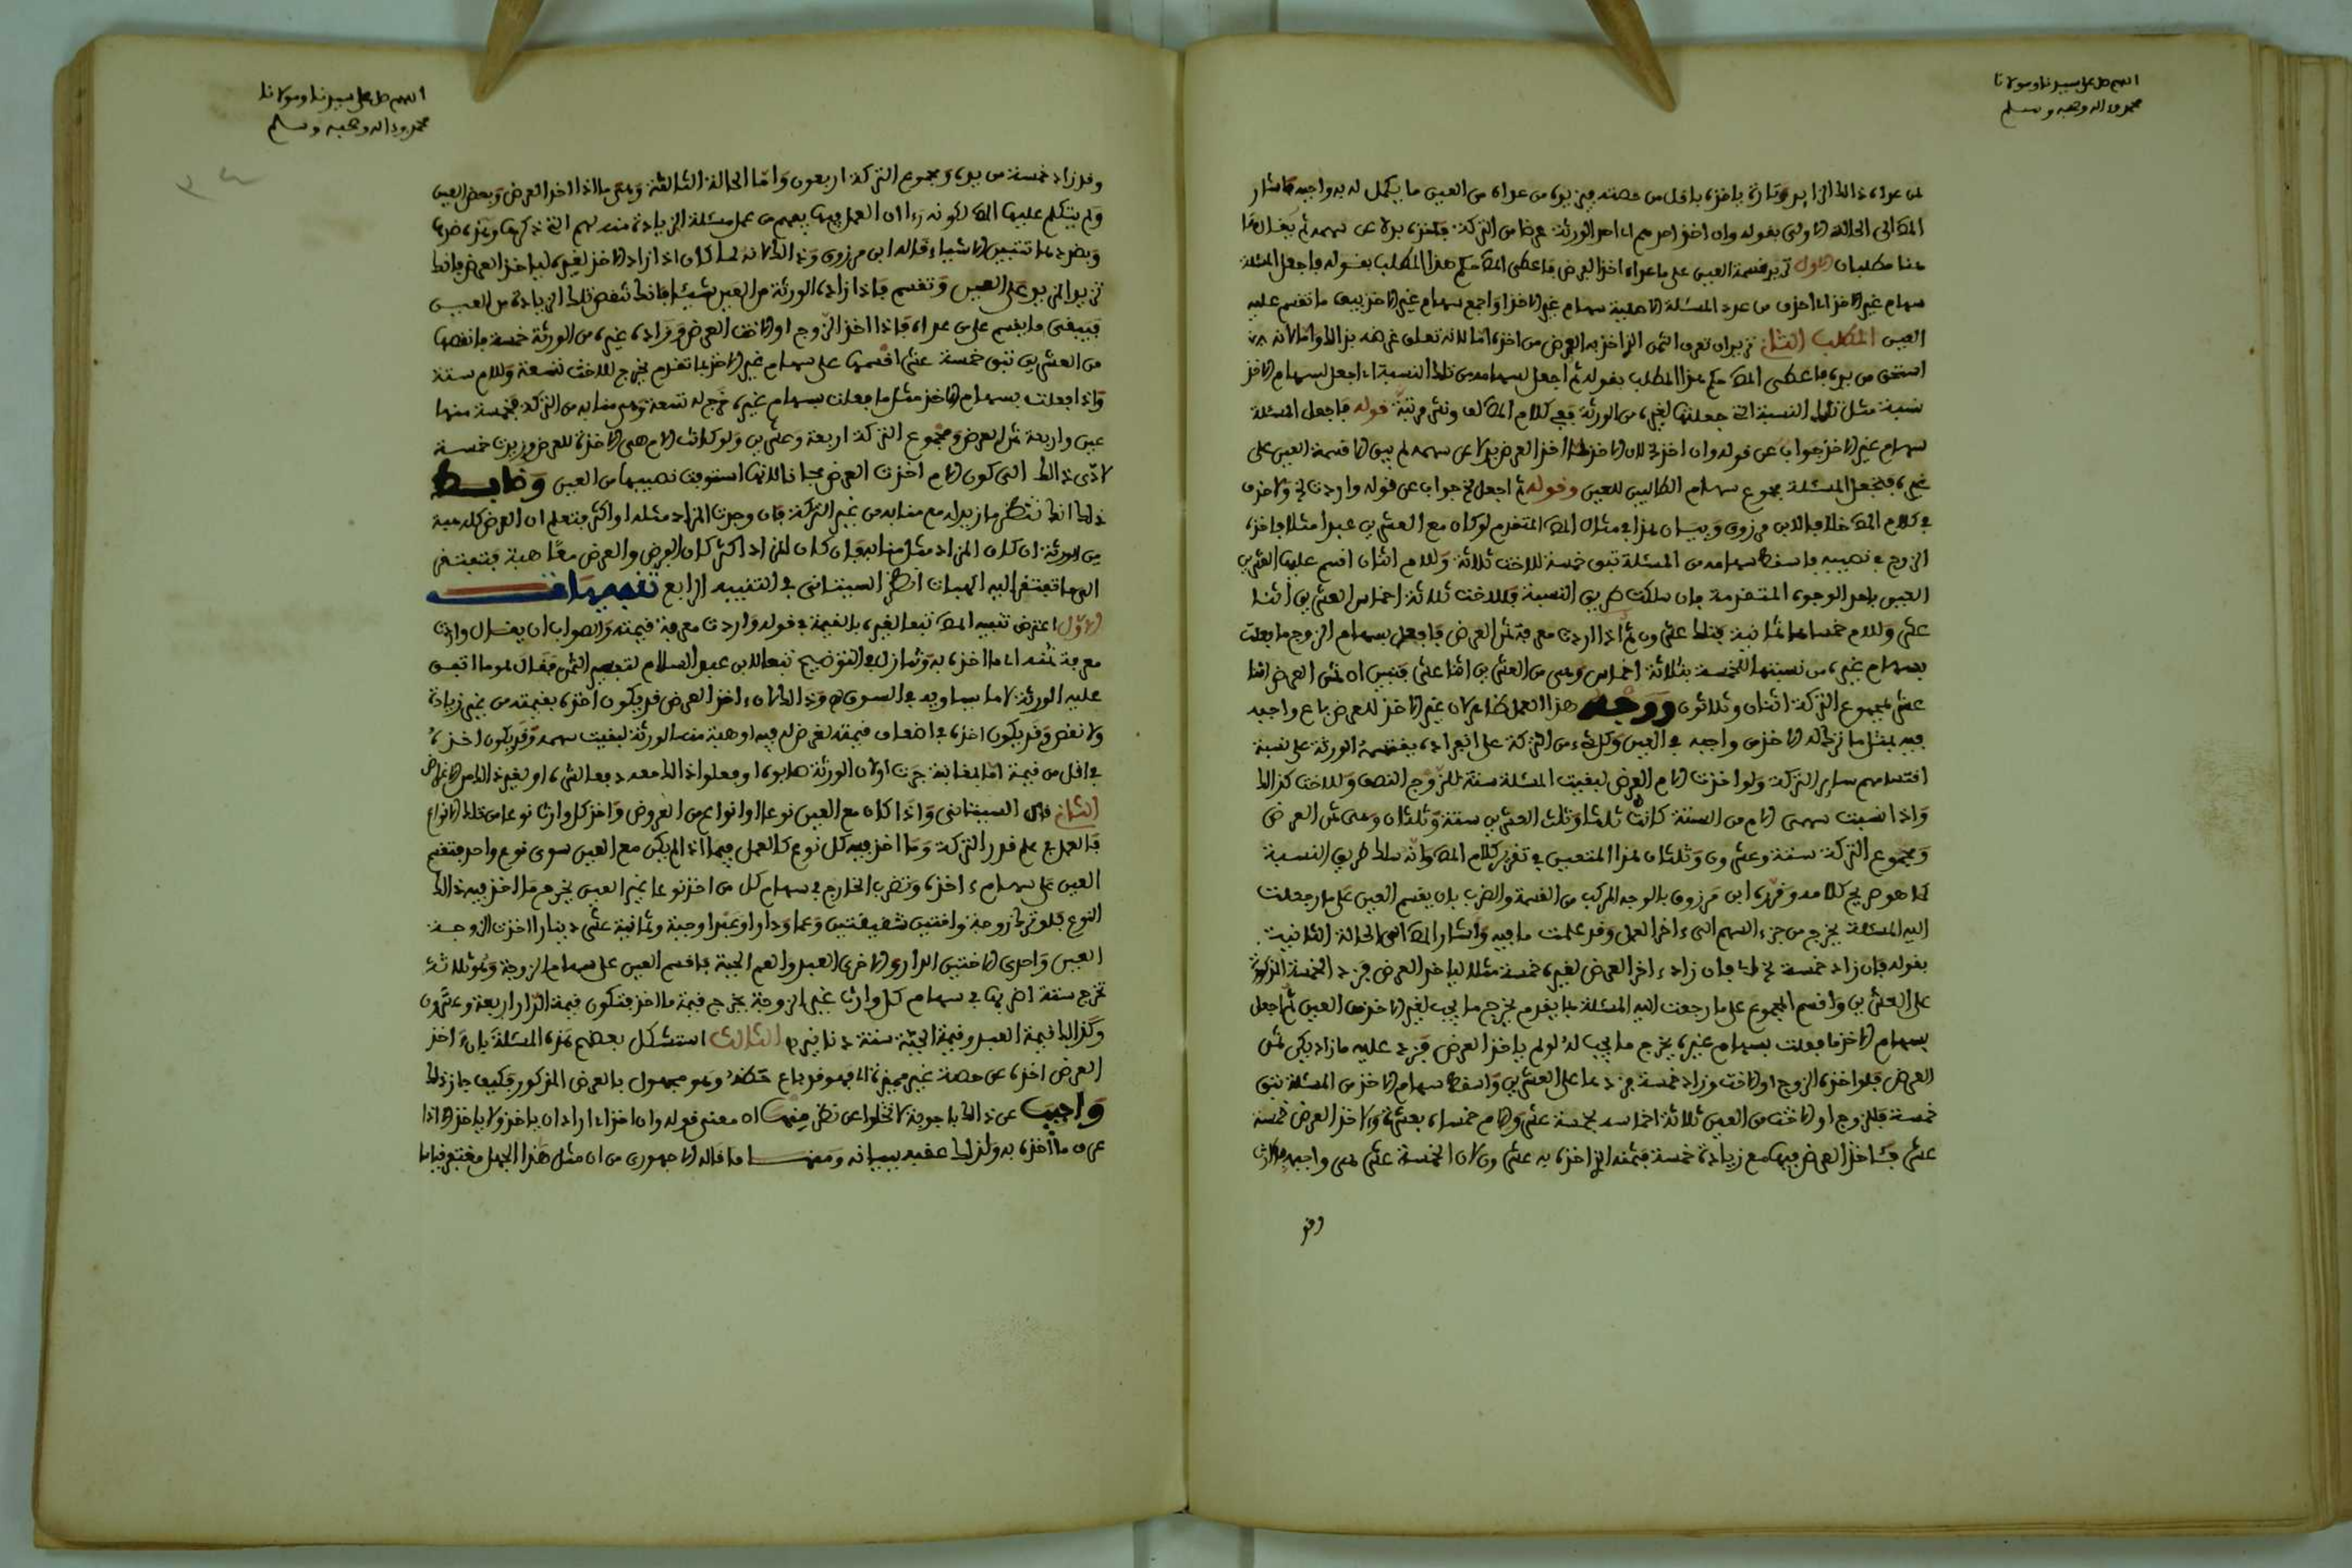 اللهم صل على سيدنا ومولانا
محمد وءاله وصحبه وسلم
لمن عداه ذلك الزايد وتارة ياخذه باقل من حصته فيزيده من عداه من العين ما يكمل له به واجبه فاشار
المص الى الحالة الاولى بقوله وان اخذ احدهم اي احد الورثة عرضا من التركة فاخذه بدلا عن سهمه ثم يقال
هنا مطلبان الاول تريد قسمة العين على ما عداه اخذ العرض فاعطى المص حكم هذا المطلب بقوله فاجعل المسئلة
سهام غير الاخذ اي احذف من عدد المسئلة الاصلية سهام الاخذ واجمع سهام غير الاخذ يبقى ما تقسم عليه
العين المطلب الثاني تريد ان تعرف الثمن الذي اخذ به العرض من اخذه اما لانه تعلق غرضه بذلك واما لانه
استحق من يده فاعطى المص حكم هذا المطلب بقوله ثم اجعل لسهامه من تلك النسبة اي اجعل لسهام الاخذ
نسبة مثل تلك النسبة التي جعلتها لغيره من الورثة ففي كلام المص لف ونشر مرتبة قوله فاجعل المسئلة
سهام غير الاخذ جواب عن قوله وان اخذ لان الاخذ لما اخذ العرض بدلا عن سهمه لم يبق الا قسمة العين على
غيره فلتجعل المسئلة مجموع سهام الطالبين للعين وقوله ثم اجعل جواب عن قوله واردت ولا حذف
في كلام المص خلافا لابن مرزوق وبيان هذا في مثال المص المتقدم لو كان مع العشرين عبدا مثلا فاخذه
الزوج في نصيبه فاسقط سهامه من المسئلة تبق خمسة للاخت ثلاثة وللام اثنان اقسم عليها العشرين
العين باحد الوجوه المتقدمة فان سلكت طريق النسبة فللاخت ثلاثة اخماس العشرين اثنا
عشر وللام خمساها ثمانية فتلك عشرون ثم اذا اردت معرفة ثمن العرض فافعل بسهام الزوج ما فعلت
بسهام غيره من نسبتها للخمسة بثلاثة اخماس وهي من العشرين اثنا عشر فتبين ان ثمن العرض اثنا
عشر فمجموع التركة اثنان وثلاثون ووجه هذا العمل ظاهر لان غير الاخذ للعرض باع واجبه
فيه بمثل ما نزل له الاخذ من واجبه في العين وكل شيء من التركة على انفراده يقتسمه الورثة على نسبة
اقتسامهم ساير التركة ولو اخذت الام العرض لبقيت المسئلة ستة للزوج النصف وللاخت كذلك
واذا نسبت سهمي الام من الستة كانت ثلثا وثلث العشرين ستة وثلثان وهي ثمن العرض
ومجموع التركة ستة وعشرون وثلثان هذا المتعين في تقرير كلام المص وانه سلك طريق النسبة
كما هو صريح كلامه وقرره ابن مرزوق بالوجه المركب من القسمة والضرب بان يقسم العين على ما رجعت
اليه المسئلة يخرج من جزء السهم الى ءاخر العمل وقد علمت ما فيه واشار المص الى الحالة الثانية
بقوله فان زاد خمسة فان زاد ءاخذ العرض لغيره خمسة مثلا لياخذ العرض فزد الخمسة المذكورة
على العشرين واقسم المجموع على ما رجعت اليه المسئلة بما تقدم يخرج ما يجب لغير الاخذ من العين ثم اجعل
بسهام الاخذ ما فعلت بسهام غيره يخرج ما يجب له لو لم ياخذ العرض فزد عليه ما زاد يكن ثمن
العرض فلو اخذه الزوج او الاخت وزاد خمسة فزدها على العشرين واسقط سهام الاخذ من المسئلة تبق
خمسة فللزوج او الاخت من العين ثلاثة اخماسه بخمسة عشر وللام خمساه بعشرة ولاخذ العرض خمسة
عشر فياخذ العرض فيها مع زيادة خمسة فثمنه الذي اخذه به عشرون لان الخمسة عشر هي واجبه
وقد
اللهم صل على سيدنا ومولانا
محمد وءاله وصحبه وسلم
وقد زاد خمسة من يده ومجموع التركة اربعون واما الحالة الثالثة وهي ما اذا اخذ العرض وبعض العين
ولم يتكلم عليها المص لكونه رءا ان العمل فيها يفهم من عمل مسئلة الزيادة منه لهم التي ذكرها وهذه ضدها
وبضدها تتبين الاشياء قاله ابن مرزوق وذلك لانه لما كان اذا زاد الاخذ لغيره لياخذ العرض فانك
تزيد المزيد على العين وتقسم فاذا زاده الورثة من العين شيئا فانك تنقص تلك الزيادة من العين
فيبقى ما يقسم على من عداه فاذا اخذ الزوج او الاخت العرض وزاده غيره من الورثة خمسة فانقصها
من العشرين تبق خمسة عشر اقسمها على سهام غير الاخذ بما تقدم يخرج للاخت تسعة وللام ستة
واذا فعلت بسهام الاخذ مثل ما فعلت بسهام غيره خرج له تسعة وهي منابه من التركة فخمسة منها
عين واربعة ثمن العرض ومجموع التركة اربعة وعشرين ولو كانت الام هي الاخذة للعرض وزيدت خمسة
لادى ذلك الى كون الام اخذت العرض مجانا لانها استوفت نصيبها من العين وضابط
ذلك انك تنظر ما زيد له مع منابه من غير التركة فان وجدت المزاد مثله او اكثر فتعلم ان العرض كله هبة
من الورثة ان كان المزاد مثل منابه وان كان المزاد اكثر كان العرض والعرض معا هبة فتفتقر
الى ما تفتقر اليه الهبات انظر السيتاني في التنبيه الرابع تنبيهات
الاول اعترض تنبيه المص تبعا لغيره بالقيمة في قوله واردت معرفة قيمته والصواب ان يقال واردت
معرفة ثمنه اي ما اخذه به وتنازل في التوضيح تبعا لابن عبد السلام لتفسير الثمن فقال هو ما اتفق
عليه الورثة لا ما يساويه في السوق وذلك لان ءاخذ العرض قد يكون اخذه بقيمته من غير زيادة
ولا نقص وقد يكون اخذه باضعاف قيمته لغرض له فيه او هبة منه للورثة لبقيت سهمه وقد يكون اخذه
في اقل من قيمة اما لمغابنة جرت او لان الورثة هابوه او فعلوا ذلك معه دفعا لشره او لغير ذلك من الاغراض
الثاني قال السيتاني واذا كان مع العين نوعا او انواع من العروض واخذ كل وارث نوعا من تلك الانواع
فالعمل في علم قدر التركة وما اخذ فيه كل نوع كالعمل فيما اذا لم يكن مع العين سوى نوع واحد فتقسم
العين على سهام ءاخذه وتضرب الخارج في سهام كل من اخذ نوعا غير العين يخرج ما اخذ فيه ذلك
النوع فلو ترك زوجة واختين شقيقتين وعما ودارا وعبدا وجبة وثمانية عشر دينارا اخذت الزوجة
العين واحدى الاختين الدار والاخرى العبد والعم الجبة فاقسم العين على سهام الزوجة وهو ثلاثة
تخرج ستة اضربها في سهام كل وارث غير الزوجة يخرج قيمة ما اخذ فتكون قيمة الدار اربعة وعشرون
وكذلك قيمة العبد وقيمة الجبة ستة دنانير الثالث استشكل بعضهم هذه المسئلة بان ءاخذ
العرض اخذه عن حصة غير مميزة له فهو قد باع حظه وهو مجهول بالعرض المذكور فكيف جاز ذلك
واجيب عن ذلك باجوبة لا تخلوا عن نظر منها ان معنى قوله وان اخذ اي اراد ان ياخذ ولا ياخذ الا اذا
عرف ما اخذه به ولذلك عقبه ببيانه ومنها ما قاله الاجهوري من ان مثل هذا الجهل مغتفر